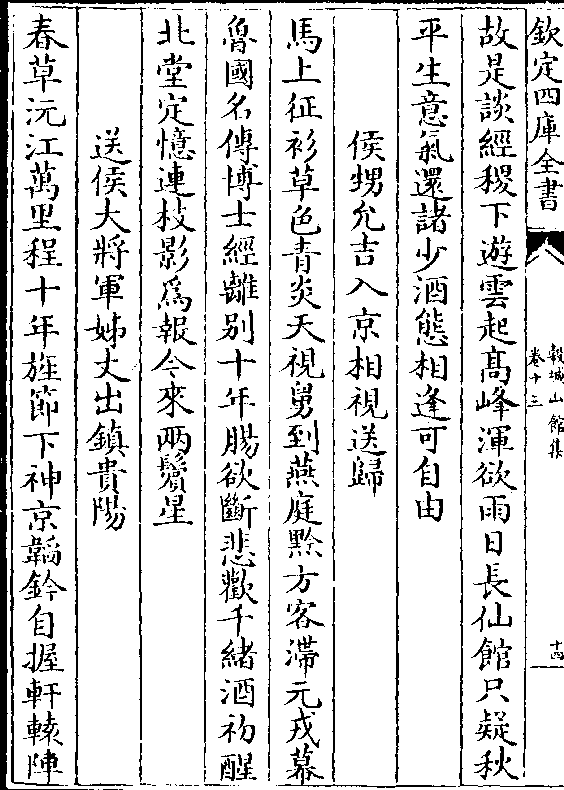 欽定四庫全書
穀城山館集
卷十三
十四
故是談經稷下遊雲起髙峰渾欲雨日長仙館只疑秋
平生意氣還諸少酒態相逢可自由
侯甥允吉入京相視送歸
馬上征衫草色青炎天視舅到燕庭黔方客滯元戎幕
魯國名傳博士經離别十年腸欲斷悲歡千緒酒初醒
北堂定憶連枝影為報今來兩鬢星
送侯大將軍姊丈出鎮貴陽
春草沅江萬里程十年旌節下神京韜鈐自握軒轅陣